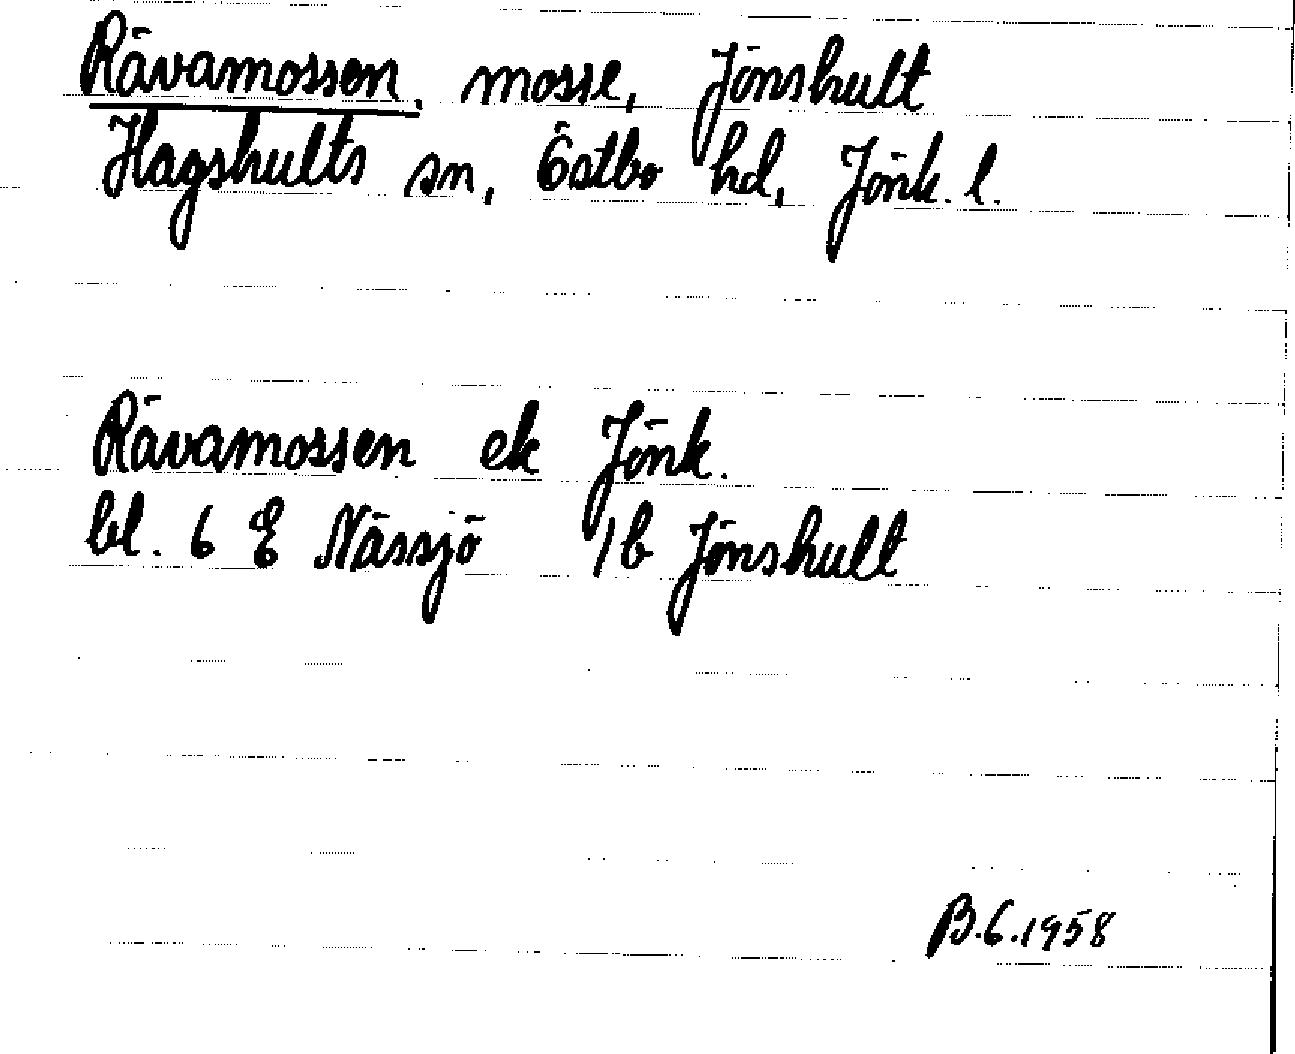 Rävamossen, mosse, Jönshult
Hagshults sn, Östbo hd, Jönk. l.
Rävamossen ek Jönk.
bl. 6 E Nässjö 1b Jönshult
B.6.1958